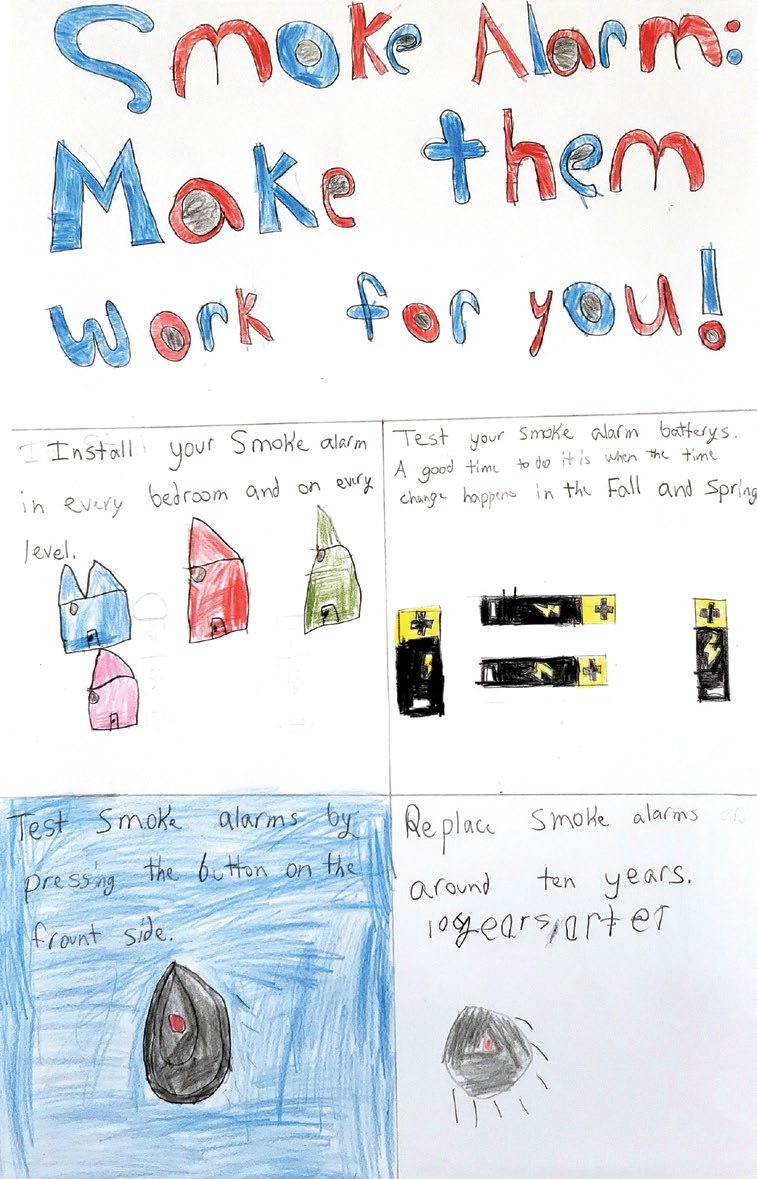 Smoke Alarm:
Make them
work for you!
Install your Smoke alarm
in every bedroom and on every
level.
Test your smoke alarm batterys.
A good time to do it is when the time
change happens in the Fall and Spring
Test Smoke alarms by
pressing the button on the
frount side.
Replace Smoke alarms
around ten years.
years/arter